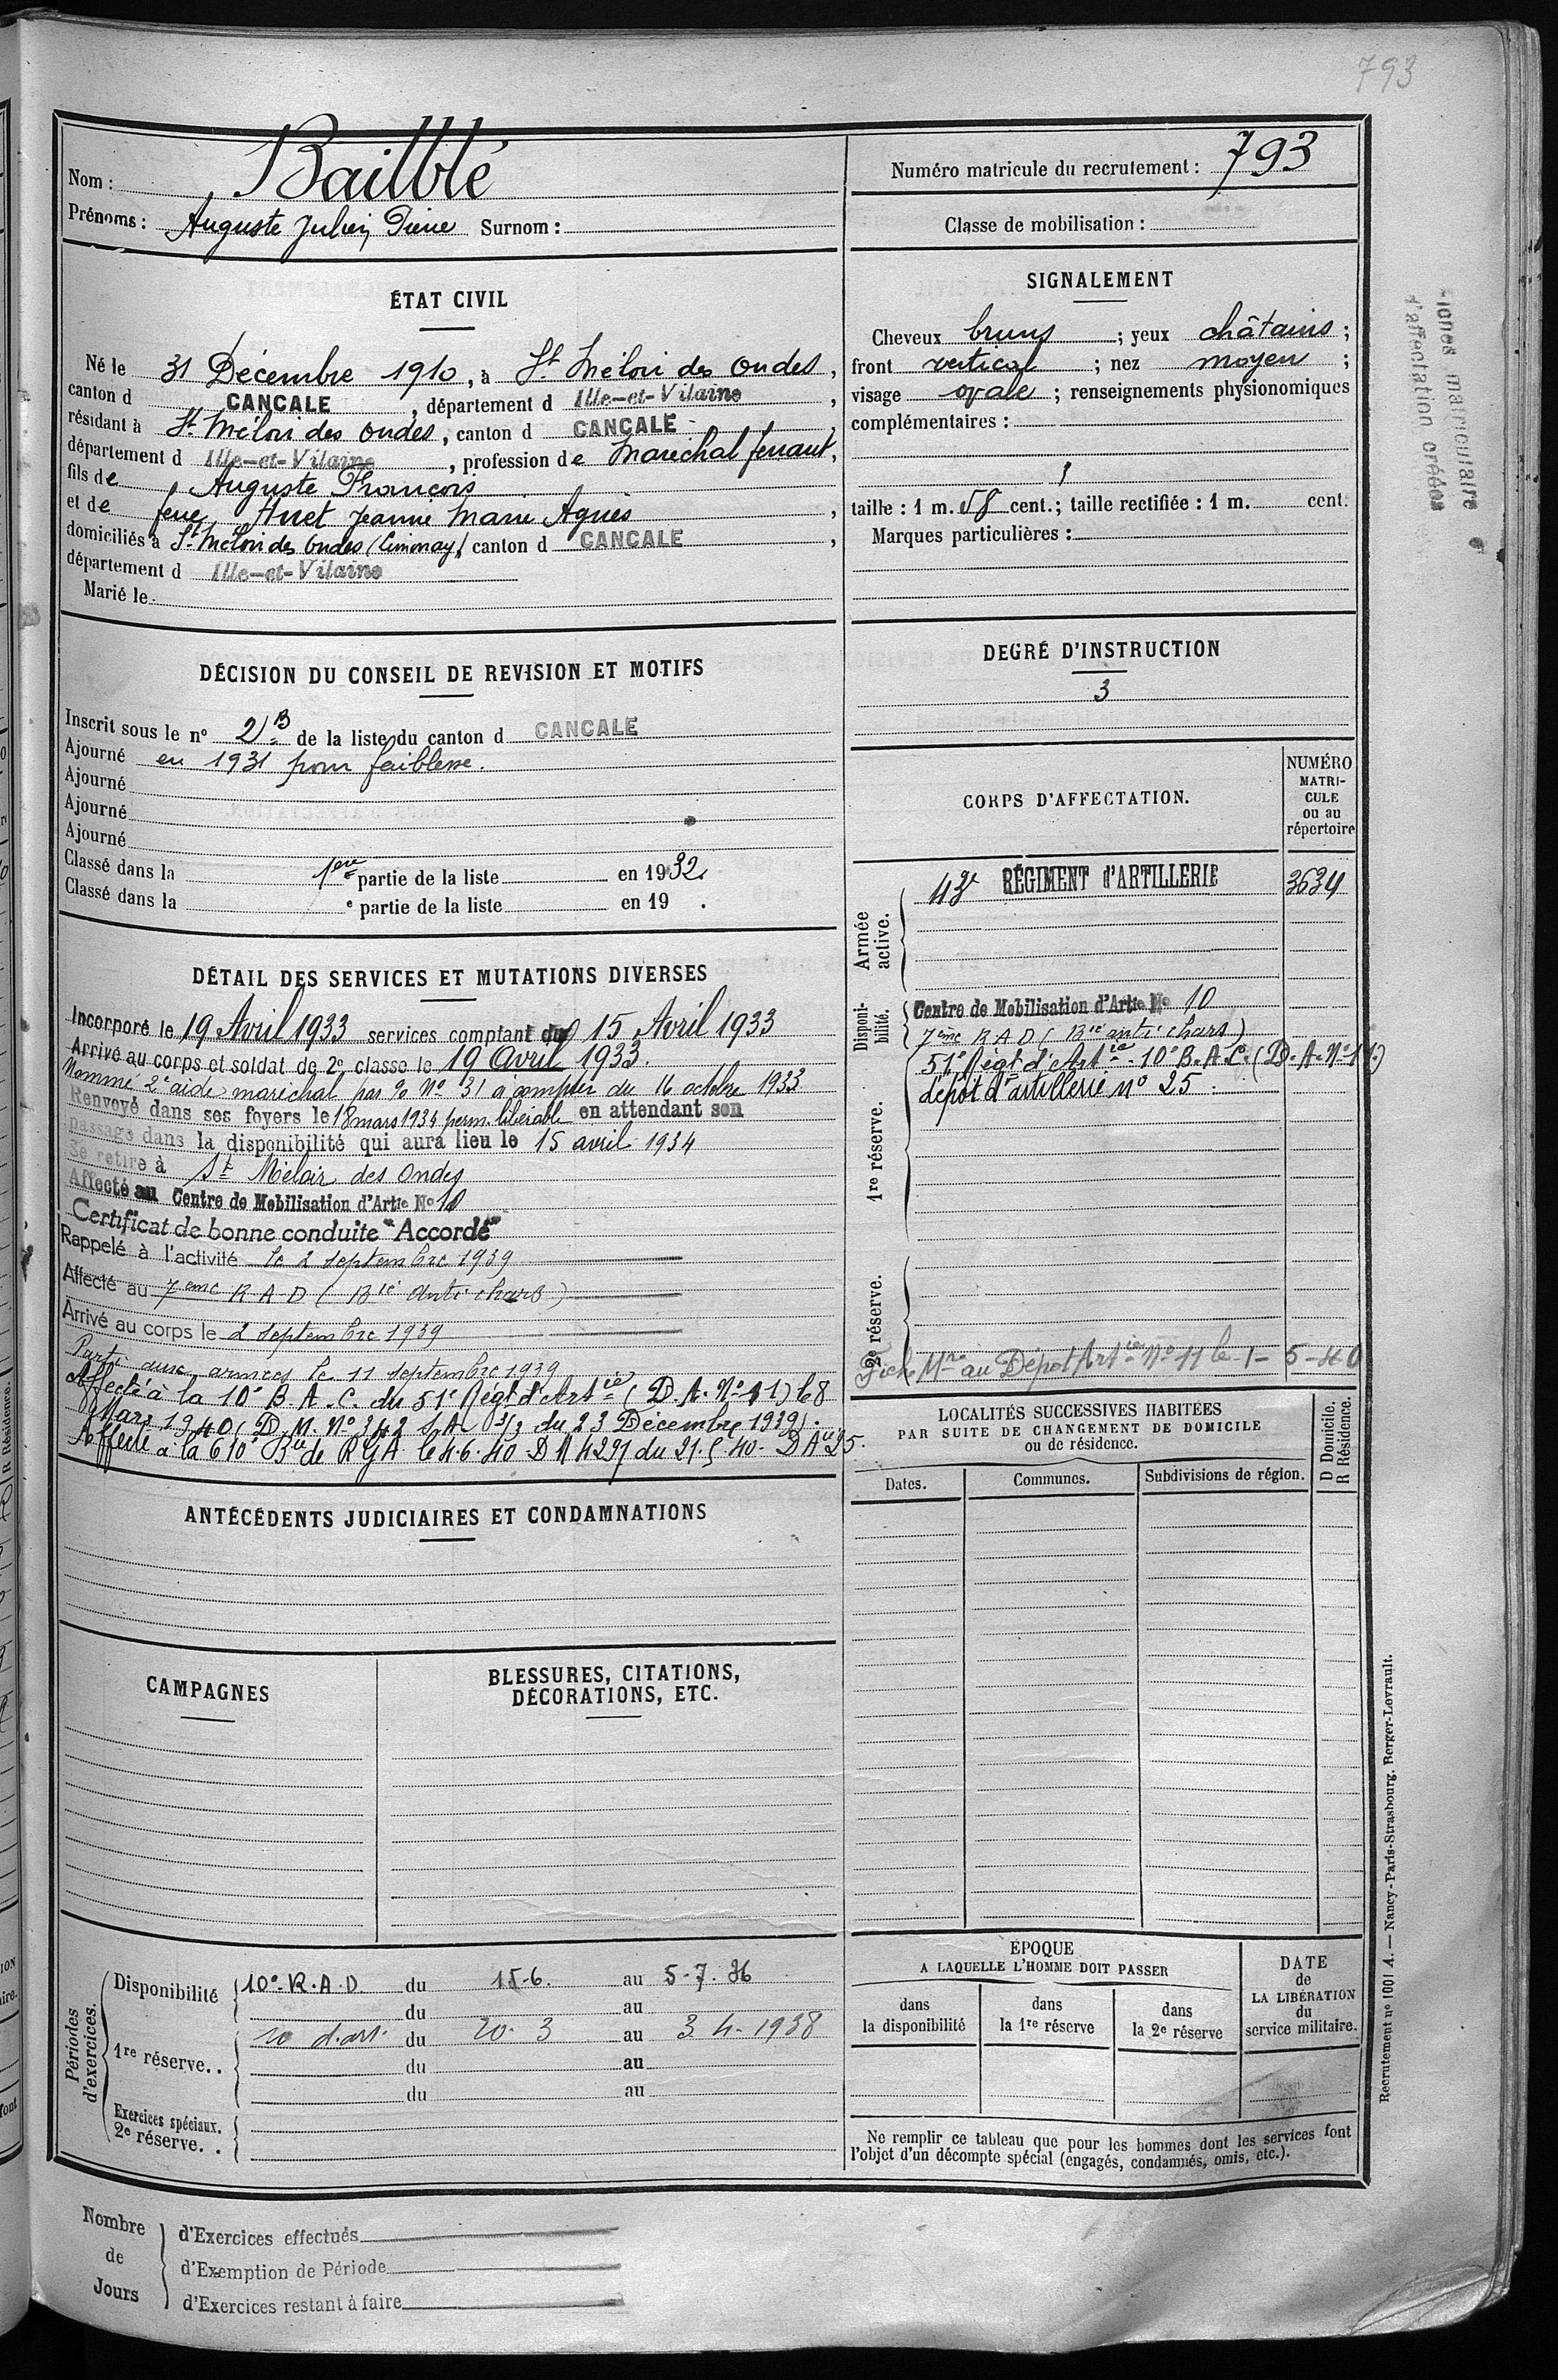 793
Nom : Bailblé
Prénoms : Auguste Julien Pierre Surnom :
Numéro matricule du recrutement : 793
Classe de mobilisation :
ÉTAT CIVIL
Né le 31 Décembre 1910, à St. Méloir des Ondes,
canton d CANCALE, département d Ille-et-Vilaine,
résidant à St. Méloir des Ondes, canton d CANCALE,
département d Ille-et-Vilaine, profession de Maréchal ferrant,
fils de Auguste François
et de feue Jeanne Marie Agnès,
domiciliés à St. Méloir des Ondes canton d CANCALE,
département d Ille-et-Vilaine
Marié le
SIGNALEMENT
Cheveux bruns ; yeux châtains ;
front vertical ; nez moyen ;
visage ovale ; renseignements physionomiques
complémentaires :
taille : 1 m. 58 cent. ; taille rectifiée : 1 m. cent.
Marques particulières :
DÉCISION DU CONSEIL DE REVISION ET MOTIFS
Inscrit sous le n° 2 B de la liste du canton d CANCALE
Ajourné en 1931 pour faiblesse.
Ajourné
Ajourné
Ajourné
Classé dans la 1ère partie de la liste en 1932.
Classé dans la e partie de la liste en 19 .
DEGRÉ D'INSTRUCTION
3
CORPS D'AFFECTATION.
NUMÉRO
MATRI-
CULE
ou au
répertoire
Armée active.
42e RÉGIMENT d'ARTILLERIE 3634
Disponibilité.
Centre de Mobilisation d'Artie No 10
7ème R A D (Bie anti chars)
1re réserve.
51e Régt d'Artie - 10e B. A. C. (D. A. N° 11)
dépôt d'artillerie n° 25.
2e réserve.
Fiche Mre au Dépot Artie N° 11 le 1-5-40
DÉTAIL DES SERVICES ET MUTATIONS DIVERSES
Incorporé le 19 Avril 1933 services comptant du 15 Avril 1933
Arrivé au corps et soldat de 2e classe le 19 Avril 1933.
Nommé 2e aide maréchal par % N° 31 à compter du 16 octobre 1933
Renvoyé dans ses foyers le 18 mars 1934 perm. libérable en attendant son
passage dans la disponibilité qui aura lieu le 15 avril 1934
Se retire à St Méloir des Ondes
Affecté au Centre de Mobilisation d'Artie No 10
Certificat de bonne conduite "Accordé"
Rappelé à l'activité le 2 septembre 1939
Affecté au 7ème R A D (Bie Anti chars)
Arrivé au corps le 2 septembre 1939
Parti aux armées le 11 septembre 1939
Affecté à la 10e B. A. C. du 51e Régt d'Artie (D. A. N° 11) le 8
Mars 1940 (D. M. N° 342 1. A 3/3 du 23 Décembre 1939).
Affecté à la 610e Bie de R G A le 4.6.40 D M 4291 du 21.5.40 - D A 25.
ANTÉCÉDENTS JUDICIAIRES ET CONDAMNATIONS
CAMPAGNES
BLESSURES, CITATIONS,
DÉCORATIONS, ETC.
LOCALITÉS SUCCESSIVES HABITÉES
PAR SUITE DE CHANGEMENT DE DOMICILE
ou de résidence.
D Domicile.
R Résidence.
Dates. Communes. Subdivisions de région.
Périodes d'exercices.
Disponibilité 10e R.A.D. du 15-6. au 5-7.36
du au
1re réserve. . 10 d'art. du 20-3 au 3-4-1938
du au
du au
Exercices spéciaux.
2e réserve. .
ÉPOQUE
A LAQUELLE L'HOMME DOIT PASSER
dans
la disponibilité
dans
la 1re réserve
dans
la 2e réserve
DATE
de
LA LIBÉRATION
du
service militaire.
Ne remplir ce tableau que pour les hommes dont les services font
l'objet d'un décompte spécial (engagés, condamnés, omis, etc.).
Recrutement n° 1001 A. — Nancy-Paris-Strasbourg, Berger-Levrault.
Nombre
de
Jours
d'Exercices effectués
d'Exemption de Période
d'Exercices restant à faire